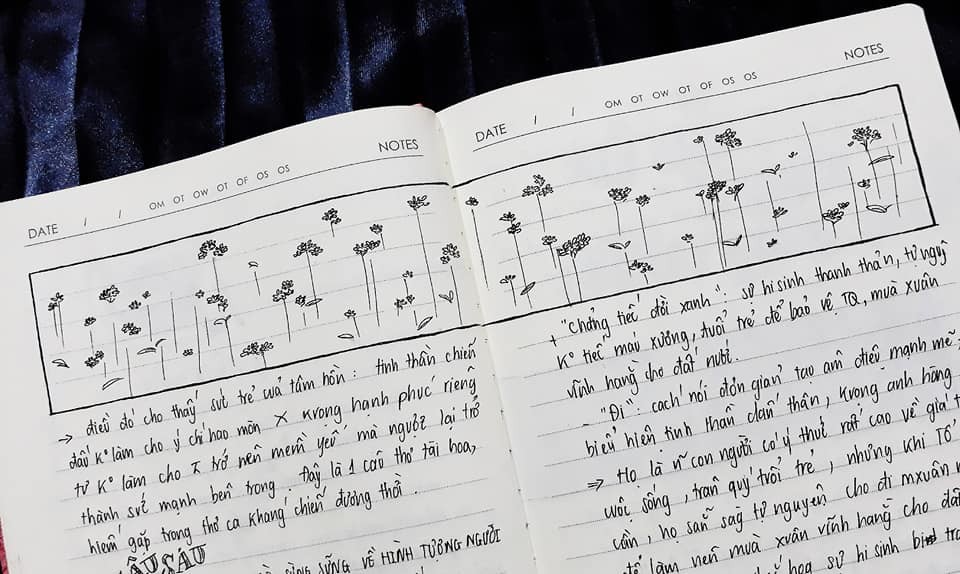 DATE / / NOTES
OM OT OW OT OF OS OS
→ điều đó cho thấy sức trẻ của tâm hồn : tinh thần chiến
đấu K° làm cho ý chí hao mòn X Kvọng hạnh phúc riêng
tư K° làm cho trở nên mềm yếu mà ngược lại trở
thành sức mạnh bên trong. Đây là 1 câu thơ tài hoa,
hiếm gặp trong thơ ca kháng chiến đương thời.
CÂU SÁU
SỮNG VỀ HÌNH TƯỢNG NGƯỜI
DATE / / NOTES
OM OT OW OT OF OS OS
+ "Chẳng tiếc đời xanh" : sự hi sinh thanh thản, tự nguyện
K° tiếc máu xương, tuổi trẻ để bảo vệ TQ, mùa xuân
vĩnh hằng cho đất nước.
"Đi" : cách nói đơn giản tạo âm điệu mạnh mẽ
biểu hiện tinh thần dấn thân, Kvọng anh hùng
⇒ Họ là ~ con người có ý thức rất cao về giá t
cuộc sống, trân quý tuổi trẻ, nhưng khi Tổ
cần, họ sẵn sàg tự nguyện cho đi mxuân
để làm nên mùa xuân vĩnh hằng cho đất
hoa sự hi sinh